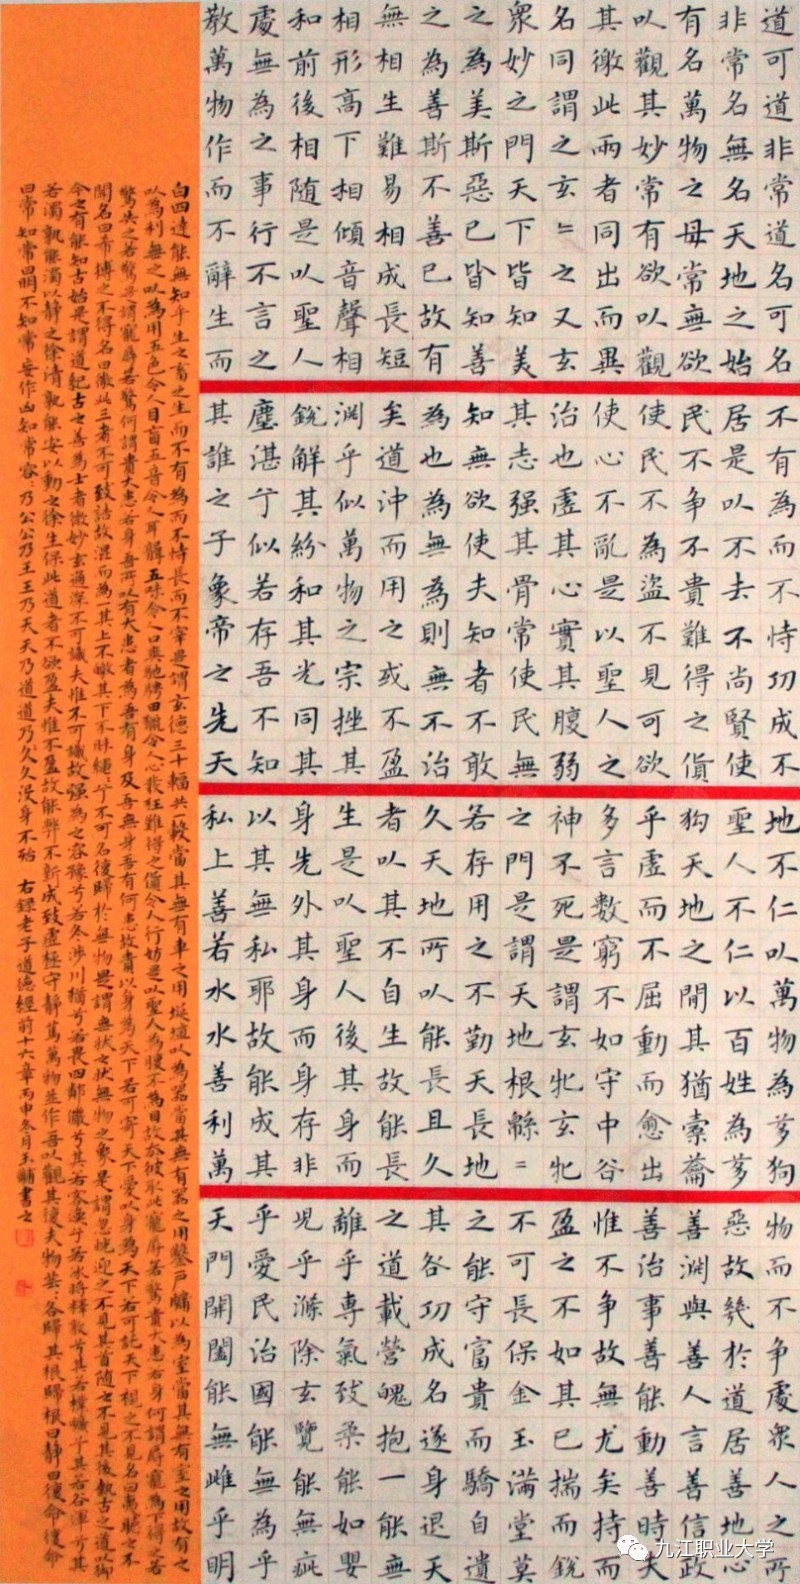 道可道非常道名可名
非常名無名天地之始
有名萬物之母常無欲
以觀其妙常有欲以觀
其徼此兩者同出而異
名同謂之玄〻之又玄
衆妙之門天下皆知美
之為美斯惡已皆知善
之為善斯不善已故有
無相生難易相成長短
相形高下相傾音聲相
和前後相随是以聖人
處無為之事行不言之
教萬物作而不辭生而
不有為而不恃功成不
居是以不去不尚賢使
民不争不貴難得之貨
使民不為盜不見可欲
使心不亂是以聖人之
治也虛其心實其腹弱
其志强其骨常使民無
知無欲使夫知者不敢
為也為無為則無不治
矣道沖而用之或不盈
渊乎似萬物之宗挫其
銳解其紛和其光同其
塵湛兮似若存吾不知
其誰之子象帝之先天
地不仁以萬物為芻狗
聖人不仁以百姓為芻
狗天地之間其猶橐籥
乎虛而不屈動而愈出
多言數窮不如守中谷
神不死是謂玄牝玄牝
之門是謂天地根緜〻
若存用之不勤天長地
久天地所以能長且久
者以其不自生故能長
生是以聖人後其身而
身先外其身而身存非
以其無私耶故能成其
私上善若水水善利萬
物而不争處衆人之所
惡故幾於道居善地心
善渊與善人言善信政
善治事善能動善時夫
惟不争故無尤矣持而
盈之不如其已揣而銳
不可長保金玉滿堂莫
之能守富貴而驕自遺
其咎功成名遂身退天
之道載營魄抱一能無
離乎專氣致柔能如嬰
児乎滌除玄覽能無疵
乎愛民治國能無為乎
天門開闔能無雌乎明
白四達能無知乎生之畜之生而不有為而不恃長而不宰是謂玄德三十輻共一轂當其無有車之用埏埴以為器當其無有器之用鑿戶牖以為室當其無有室之用故有之
以為利無之以為用五色令人目盲五音令人耳聾五味令人口爽馳騁田獵令人心發狂難得之貨令人行妨是以聖人為腹不為目故去彼取此寵辱若驚貴大患若身何謂辱寵為下得之若
驚失之若驚是謂寵辱若驚何謂貴大患若身吾所以有大患者為吾有身及吾無身吾有何患故貴以身為天下若可寄天下愛以身為天下若可託天下視之不見名曰夷聽之不
聞名曰希搏之不得名曰微此三者不可致詰故混而為一其上不皦其下不昧繩兮不可名復歸於無物是謂無狀之狀無物之象是謂忽恍迎之不見其首随之不見其後執古之道以御
今之有能知古始是謂道紀古之善為士者微妙玄通深不可識夫惟不可識故强為之容豫兮若冬涉川猶兮若畏四鄰儼兮其若客渙兮若冰將釋敦兮其若樸曠兮其若谷渾兮其
若濁孰能濁以靜之徐清孰能安以動之徐生保此道者不欲盈夫惟不盈故能弊不新成致虛極守靜篤萬物並作吾以觀其復夫物芸〻各歸其根歸根曰靜曰復命復命
曰常知常曰明不知常妄作凶知常容〻乃公公乃王王乃天天乃道道乃久久没身不殆 右錄老子道德經前十六章丙申冬月玉書之
九江职业大学